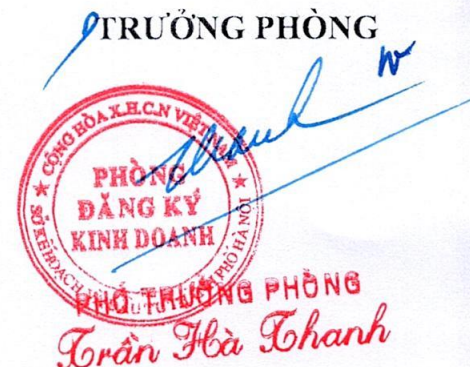 TRƯỞNG PHÒNG
CỘNG HÒA X.H.C.N VIỆT NAM
PHÒNG
ĐĂNG KÝ
KINH DOANH
SỞ KẾ HOẠCH PHỐ HÀ NỘI
PHÓ TRƯỞNG PHÒNG
Trần Hà Thanh